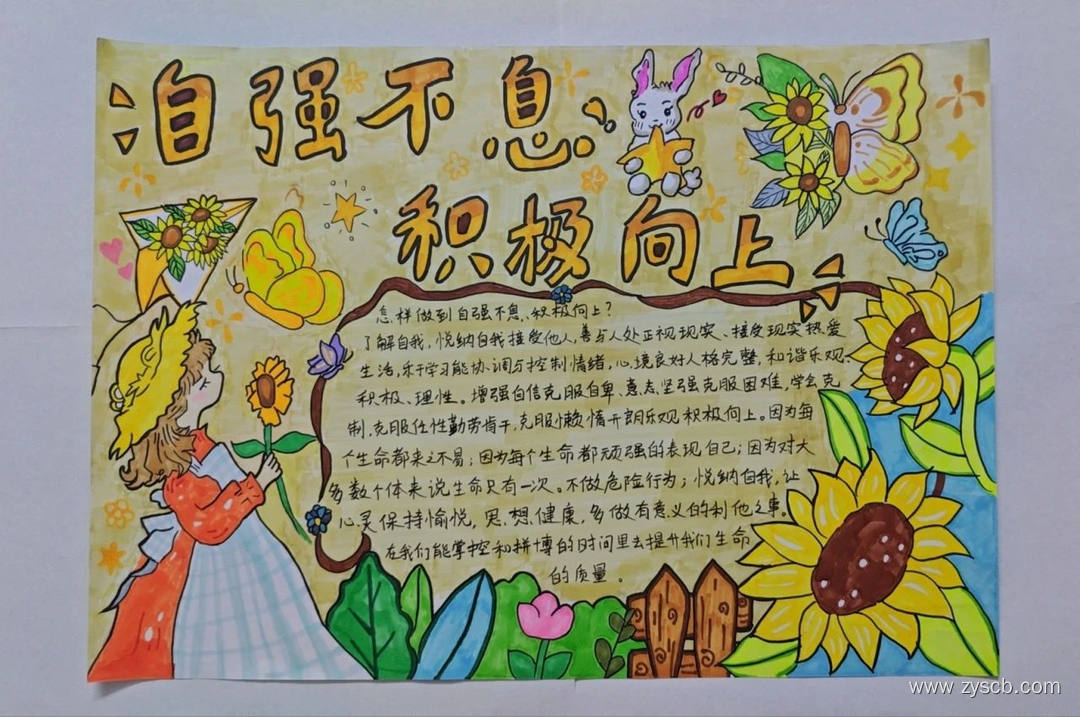 自强不息
积极向上
怎样做到自强不息、积极向上?
了解自我,悦纳自我接受他人,善与人处正视现实、接受现实热爱
生活,乐于学习能协调与控制情绪,心境良好人格完整,和谐乐观、
积极、理性。增强自信克服自卑、意志坚强克服困难,学会克
制,克服任性勤劳肯干,克服懒惰开朗乐观积极向上。因为每
个生命都来之不易;因为每个生命都顽强的表现自己;因为对大
多数个体来说生命只有一次。不做危险行为;悦纳自我,让
心灵保持愉悦,思想健康,多做有意义的利他之事。
在我们能掌控和拼博的时间里去提升我们生命
的质量。
www.zyscb.com